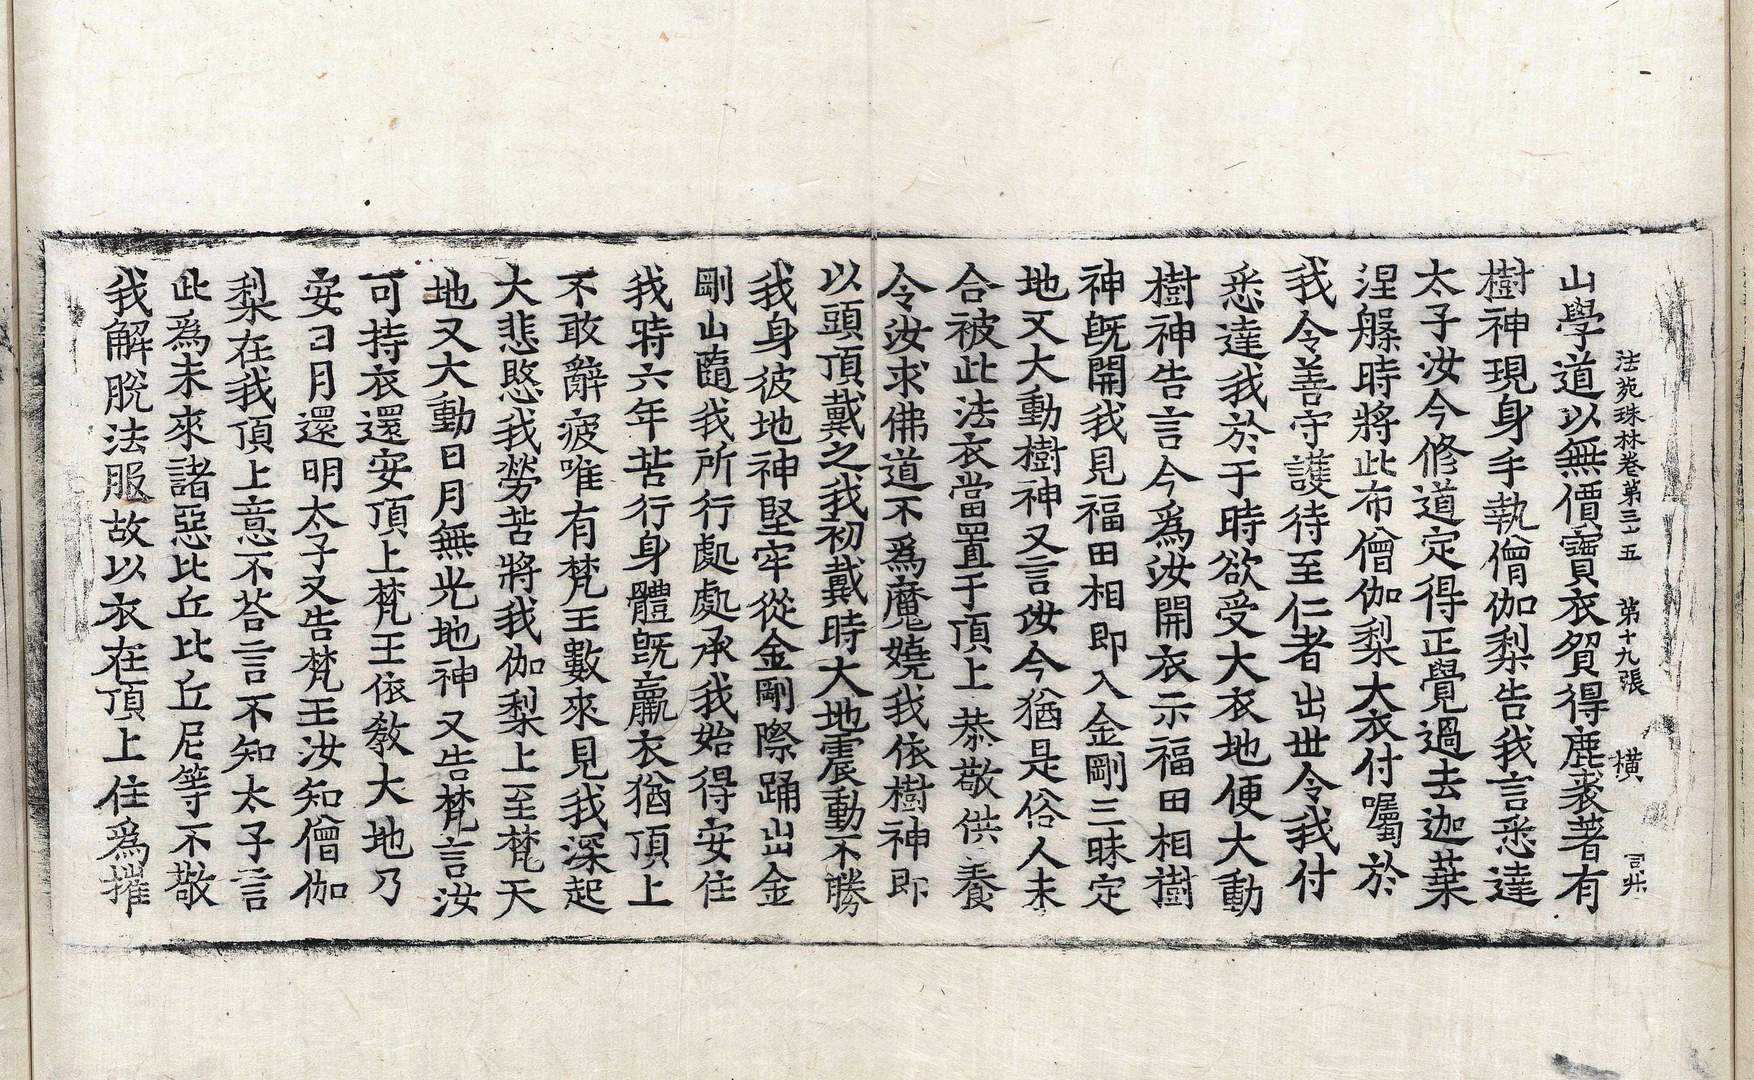 法苑珠林卷第三十五 第十九張 橫
山學道以無價寶衣貿得鹿裘著有
樹神現身手執僧伽梨告我言悉達
太子汝今修道定得正覺過去迦葉
涅槃時將此布僧伽梨大衣付囑於
我令善守護待至仁者出世令我付
悉達我於于時欲受大衣地便大動
樹神告言今爲汝開衣示福田相樹
神旣開我見福田相即入金剛三昧定
地又大動樹神又言汝今猶是俗人未
合被此法衣當置于頂上恭敬供養
令汝求佛道不爲魔嬈我依樹神即
以頭頂戴之我初戴時大地震動不勝
我身彼地神堅牢從金剛際踊出金
剛山隨我所行處處承我始得安住
我時六年苦行身體旣羸衣猶頂上
不敢辭疲唯有梵王數來見我深起
大悲愍我勞苦將我伽梨上至梵天
地又大動日月無光地神又告梵言汝
可持衣還安頂上梵王依教大地乃
安日月還明太子又告梵王汝知僧伽
梨在我頂上意不荅言不知太子言
此爲未來諸惡比丘比丘尼等不敬
我解脫法服故以衣在頂上住爲摧